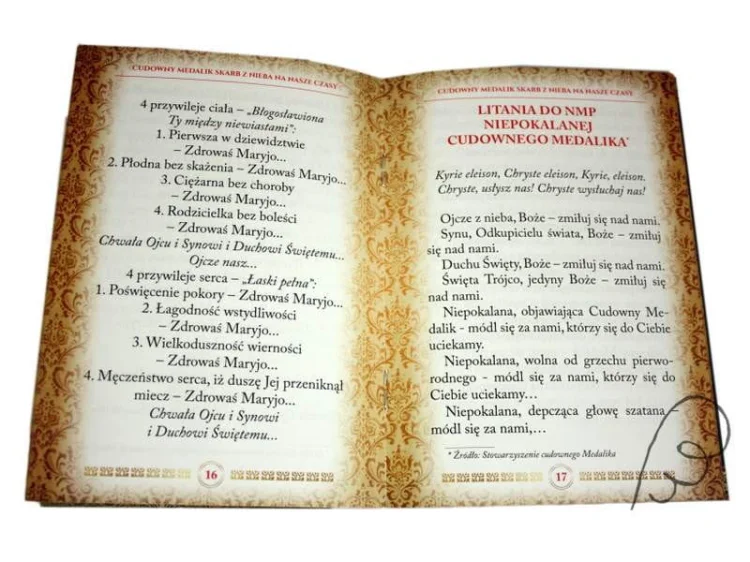 CUDOWNY MEDALIK SKARB Z NIEBA NA NASZE CZASY
4 przywileje ciała – „Błogosławiona
Ty między niewiastami”:
1. Pierwsza w dziewidztwie
– Zdrowaś Maryjo...
2. Płodna bez skażenia – Zdrowaś Maryjo...
3. Ciężarna bez choroby
– Zdrowaś Maryjo...
4. Rodzicielka bez boleści
– Zdrowaś Maryjo...
Chwała Ojcu i Synowi i Duchowi Świętemu...
Ojcze nasz...
4 przywileje serca – „Łaski pełna”:
1. Poświęcenie pokory – Zdrowaś Maryjo...
2. Łagodność wstydliwości
– Zdrowaś Maryjo...
3. Wielkoduszność wierności
– Zdrowaś Maryjo...
4. Męczeństwo serca, iż duszę Jej przeniknął
miecz – Zdrowaś Maryjo...
Chwała Ojcu i Synowi
i Duchowi Świętemu...
16
CUDOWNY MEDALIK SKARB Z NIEBA NA NASZE CZASY
LITANIA DO NMP
NIEPOKALANEJ
CUDOWNEGO MEDALIKA*
Kyrie eleison, Chryste eleison, Kyrie, eleison.
Chryste, usłysz nas! Chryste wysłuchaj nas!
Ojcze z nieba, Boże – zmiłuj się nad nami.
Synu, Odkupicielu świata, Boże – zmiłuj
się nad nami.
Duchu Święty, Boże – zmiłuj się nad nami.
Święta Trójco, jedyny Boże – zmiłuj się
nad nami.
Niepokalana, objawiająca Cudowny Me-
dalik - módl się za nami, którzy się do Ciebie
uciekamy.
Niepokalana, wolna od grzechu pierwo-
rodnego - módl się za nami, którzy się do
Ciebie uciekamy…
Niepokalana, depcząca głowę szatana -
módl się za nami,…
* Źródło: Stowarzyszenie cudownego Medalika
17